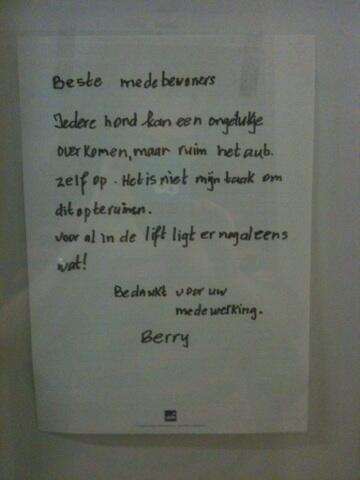 Beste medebewoners
Iedere hond kan een ongelukje
overkomen, maar ruim het aub.
zelf op. Het is niet mijn taak om
dit op te ruimen.
voor al in de lift ligt er nog al eens
wat!
Bedankt voor uw
medewerking.
Berry